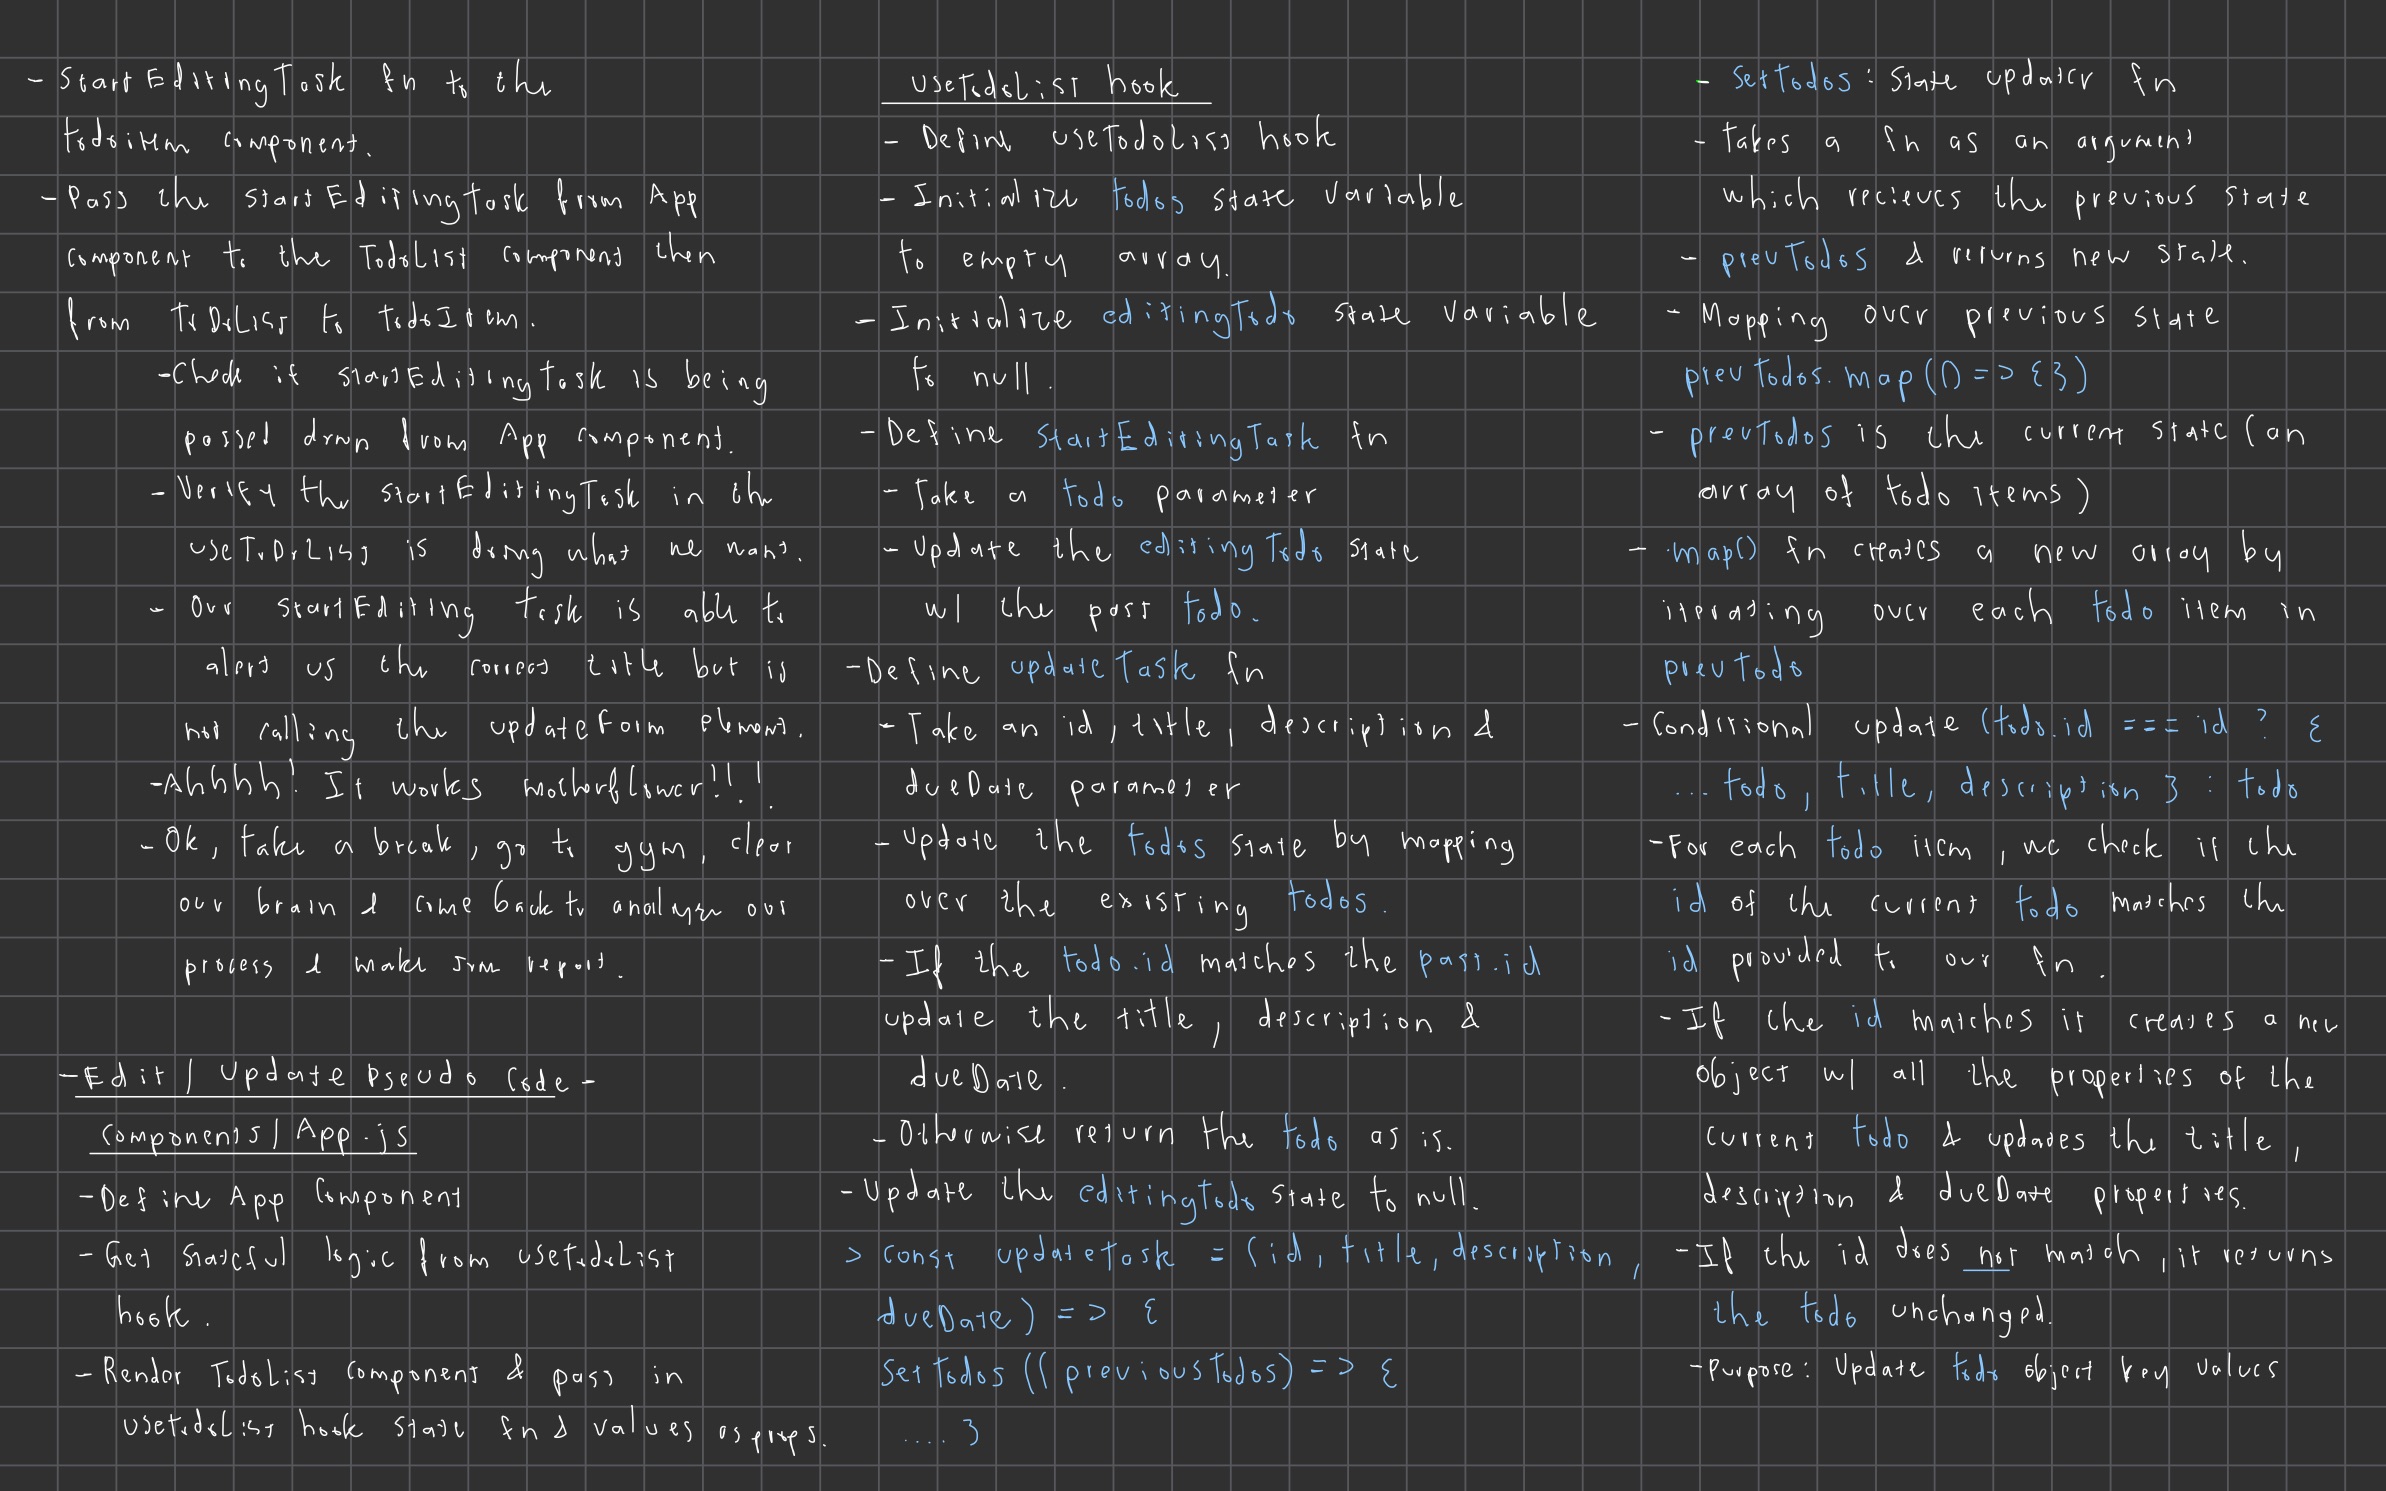 - StartEditingTask fn to the
todoitem component.
- Pass the startEditingTask from App
component to the TodoList component then
from ToDoList to todoItem.
- Check if startEditingTask is being
passed down from App component.
- Verify the startEditingTask in the
useToDoList is doing what we want.
- Our startEditing task is able to
alert us the correct title but is
not calling the updateForm element.
- Ahhhh! It works motherflower!!!
- Ok, take a break, go to gym, clear
our brain & come back to analyze our
process & make some report.
- Edit / Update Pseudo Code -
Components / App.js
- Define App Component
- Get stateful logic from usetodoList
hook.
- Render TodoList component & pass in
usetodoList hook state fn & values as props.
useTodoList hook
- Define useTodoList hook
- Initialize todos state variable
to empty array.
- Initialize editingTodo state variable
to null.
- Define startEditingTask fn
- Take a todo parameter
- Update the editingTodo state
w/ the past todo.
- Define updateTask fn
- Take an id, title, description &
dueDate parameter
- update the todos state by mapping
over the existing todos.
- If the todo.id matches the past.id
update the title, description &
dueDate.
- Otherwise return the todo as is.
- Update the editingTodo state to null.
> const updateTask = (id, title, description,
dueDate) => {
SetTodos((previousTodos) => {
.... }
- SetTodos: State updater fn
- Takes a fn as an argument
which recieves the previous state
- prevTodos & returns new state.
- Mapping over previous state
prevTodos.map(() => {})
- prevTodos is the current state (an
array of todo items)
- .map() fn creates a new array by
iterating over each todo item in
prevTodo
- Conditional update (todo.id === id ? {
...todo, title, description } : todo
- For each todo item, we check if the
id of the current todo matches the
id provided to our fn.
- If the id matches it creates a new
object w/ all the properties of the
current todo & updates the title,
description & dueDate properties.
- If the id does not match, it returns
the todo unchanged.
- Purpose: Update todo object key values